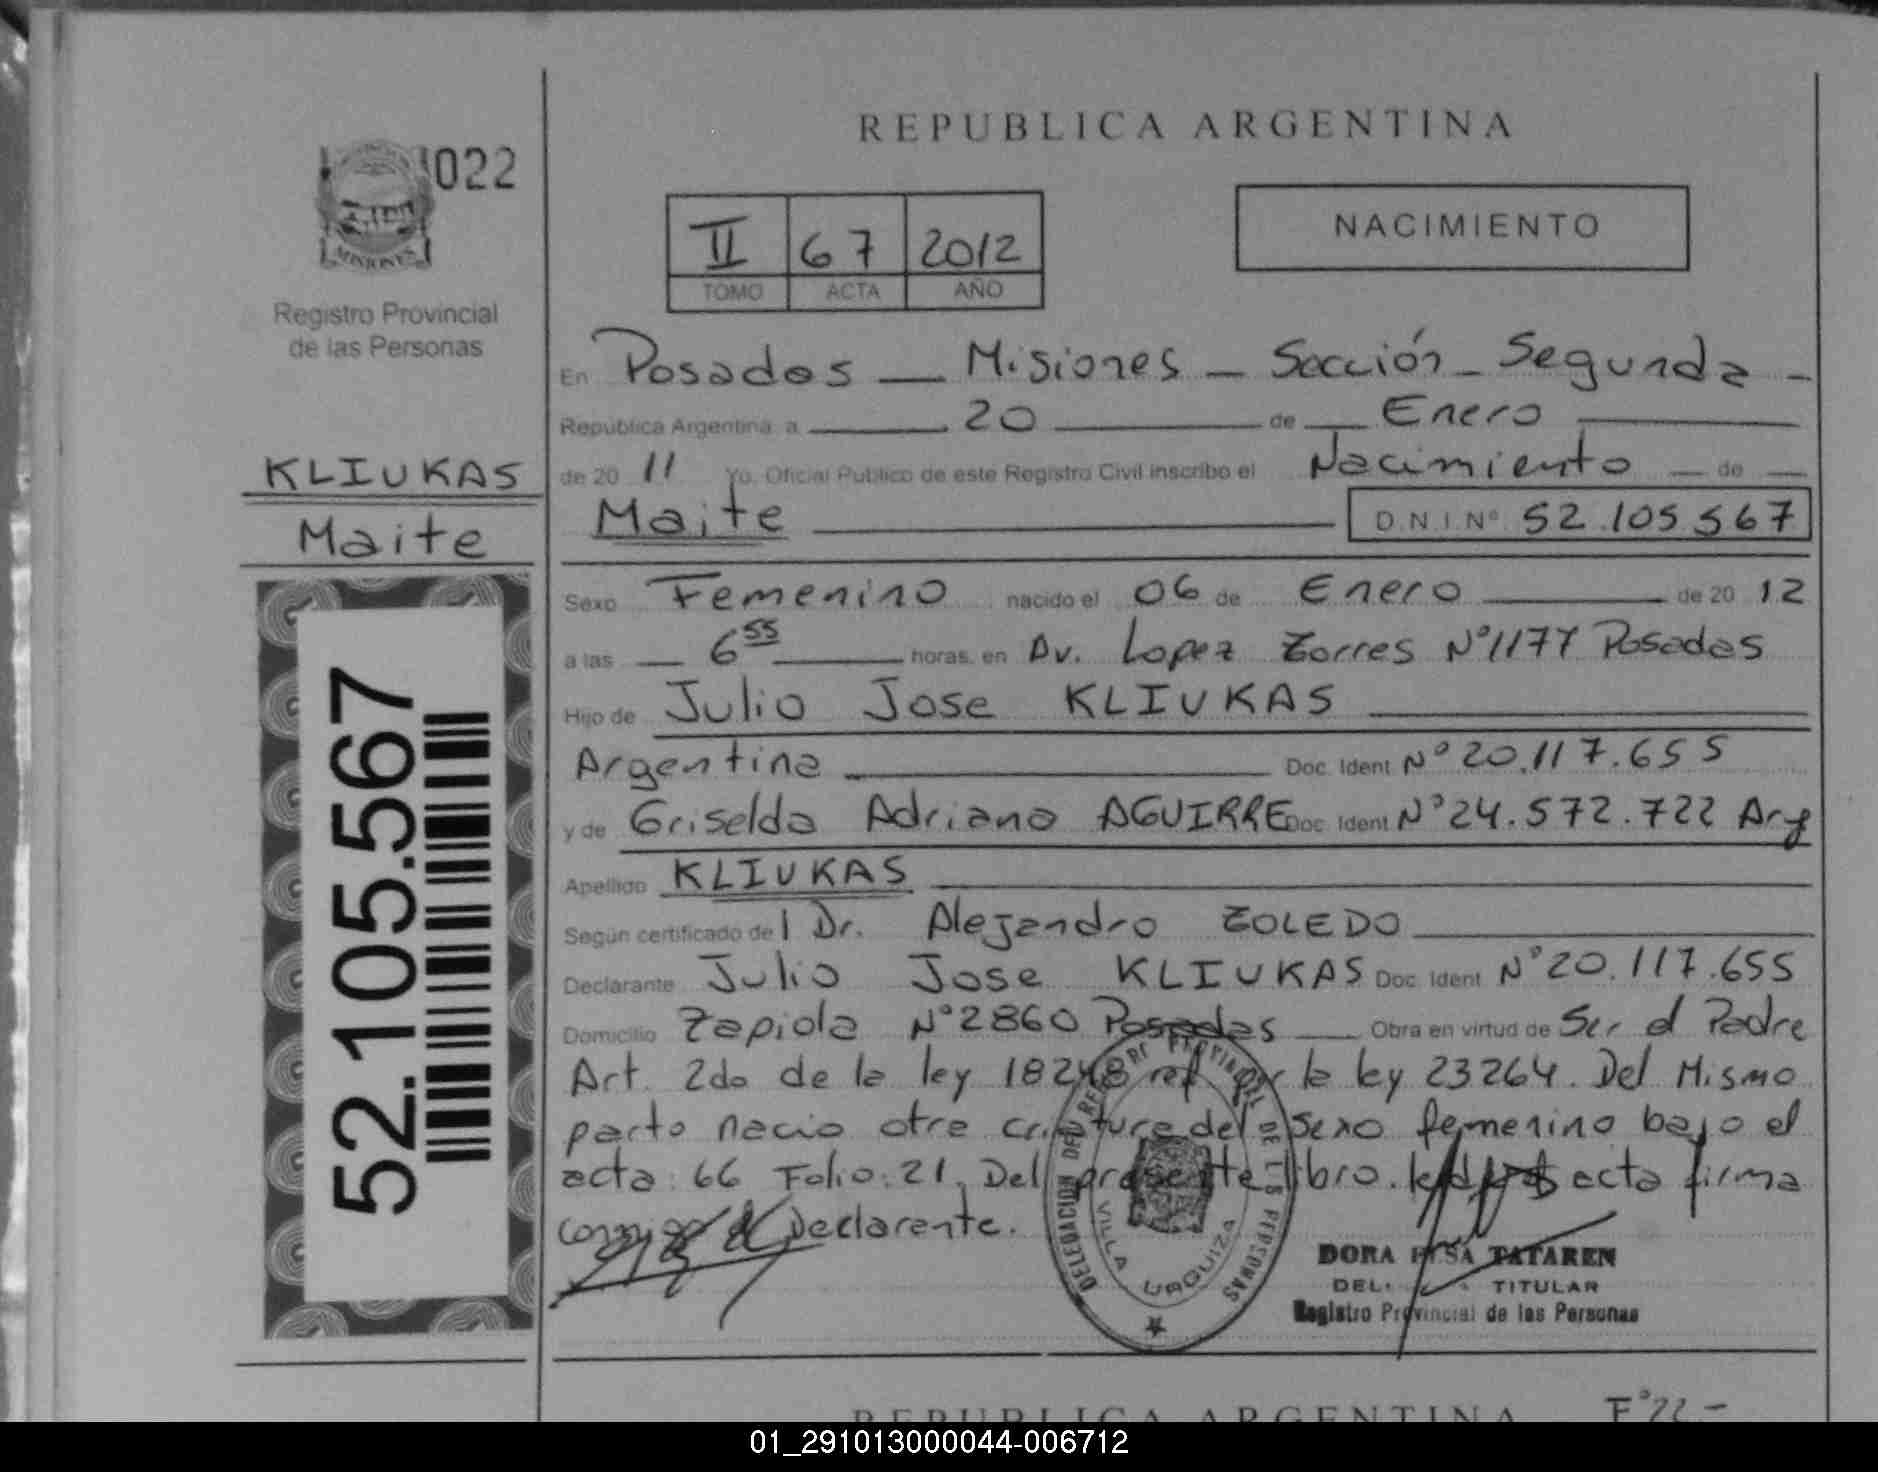 REPUBLICA ARGENTINA
022
MISIONES
Registro Provincial
de las Personas
II 67 2012
TOMO ACTA AÑO
NACIMIENTO
En Posadas — Misiones — Sección - Segunda -
República Argentina a 20 de Enero
KLIUKAS
de 20 11 Yo, Oficial Publico de este Registro Civil inscribo el Nacimiento de
Maite
Maite D.N.I. Nº 52.105.567
Sexo Femenino nacido el 06 de Enero de 20 12
a las 6 55 horas, en Av. Lopez Torres Nº 1177 Posadas
Hijo de Julio Jose KLIUKAS
Argentina Doc. Ident. Nº 20.117.655
y de Griselda Adriana AGUIRRE Doc. Ident. Nº 24.572.722 Arg
Apellido KLIUKAS
Según certificado de l Dr. Alejandro TOLEDO
Declarante Julio Jose KLIUKAS Doc. Ident. Nº 20.117.655
Domicilio Zapiola Nº 2860 Posadas Obra en virtud de Ser el Padre
Art. 2do de la ley 18248 ref por la ley 23264. Del Mismo
parto nacio otra criatura del sexo femenino bajo el
acta: 66 Folio: 21. Del presente libro. acta firma
conmigo el Declarante.
52.105.567
DELEGACION DEL REG. PROVINCIAL DE LAS PERSONAS
VILLA URQUIZA
DORA ELSA TATAREN
TITULAR
Registro Provincial de las Personas
REPUBLICA ARGENTINA Fº 22 -
01_291013000044-006712